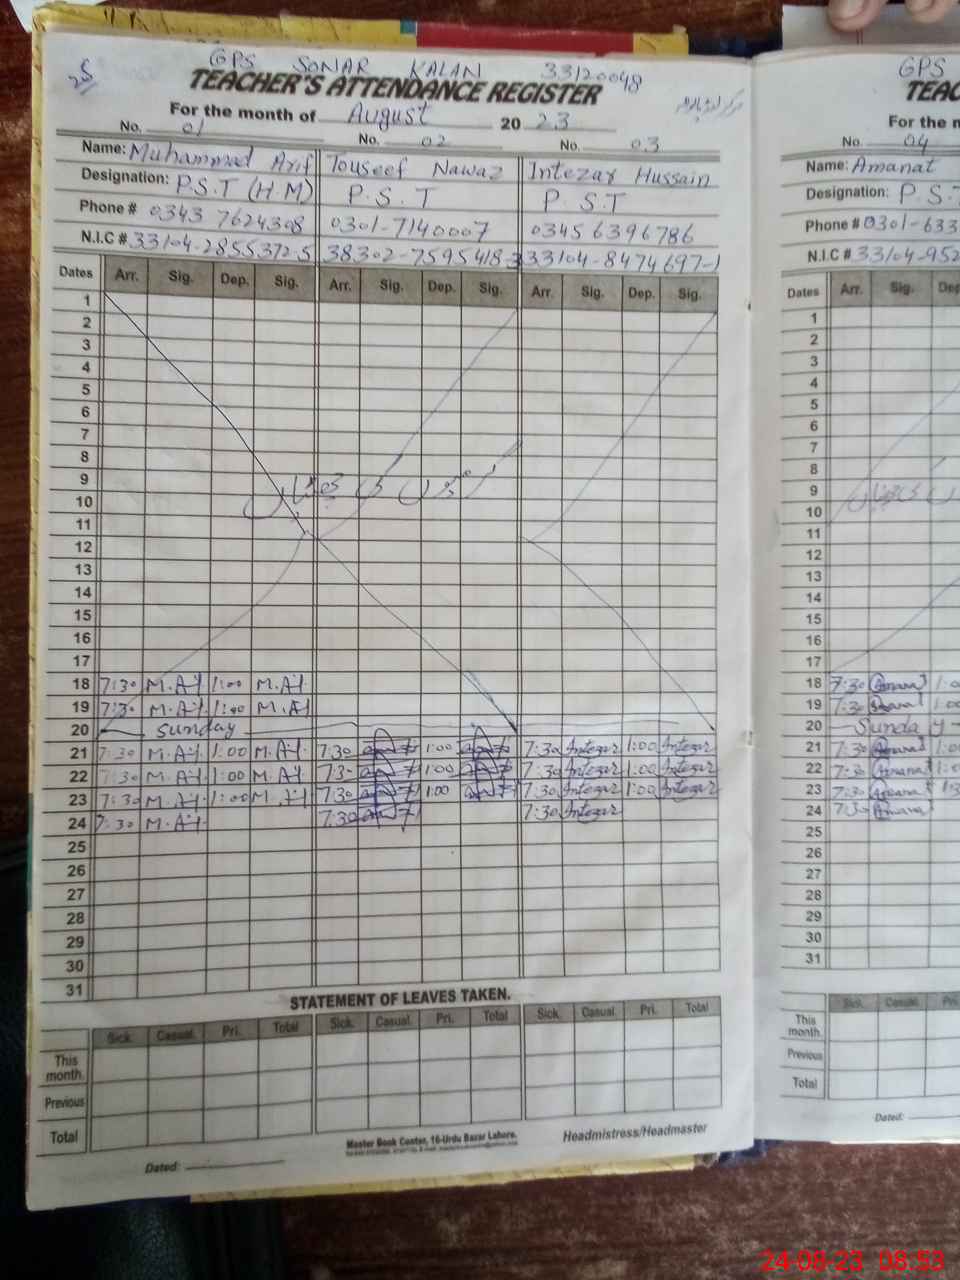 GPS SONAR KALAN 33120048
25
TEACHER'S ATTENDANCE REGISTER
For the month of August 2023
No. 01 No. 02 No. 03
Name: Muhammad Arif Touseef Nawaz Intezar Hussain
Designation: P.S.T (H.M) P.S.T P.S.T
Phone # 0343 7624308 0301-7140007 0345 6396786
N.I.C # 33104-2855372-5 38302-7595418-3 33104-8474697-1
Dates Arr. Sig. Dep. Sig. Arr. Sig. Dep. Sig. Arr. Sig. Dep. Sig.
1
2
3
4
5
6
7
8
9
10
11
12
13
14
15
16
17
18 7:30 M.Arif 1:00 M.Arif
19 7:30 M.Arif 1:00 M.Arif
20 Sunday
21 7:30 M.Arif 1:00 M.Arif 7:30 1:00 7:30 Intezar 1:00 Intezar
22 7:30 M.Arif 1:00 M.Arif 7:30 1:00 7:30 Intezar 1:00 Intezar
23 7:30 M.Arif 1:00 M.Arif 7:30 1:00 7:30 Intezar 1:00 Intezar
24 7:30 M.Arif 7:30 7:30 Intezar
25
26
27
28
29
30
31
STATEMENT OF LEAVES TAKEN.
Sick. Casual. Pri. Total Sick. Casual. Pri. Total Sick. Casual. Pri. Total
This month.
Previous
Total
Dated:
Master Book Center, 16-Urdu Bazar Lahore.
Headmistress/Headmaster
GPS
TEAC
For the m
No. 04
Name: Amanat
Designation: P.S.T
Phone # 0301-633
N.I.C # 33104-952
Dates Arr. Sig. Dep
1
2
3
4
5
6
7
8
9
10
11
12
13
14
15
16
17
18 7:30 Amanat 1:00
19 7:30 Amanat 1:00
20 Sunday
21 7:30 Amanat 1:00
22 7:30 Amanat
23 7:30 Amanat
24 7:30 Amanat
25
26
27
28
29
30
31
Sick. Casual. Pri.
This month.
Previous
Total
Dated:
24-08-23 08:53